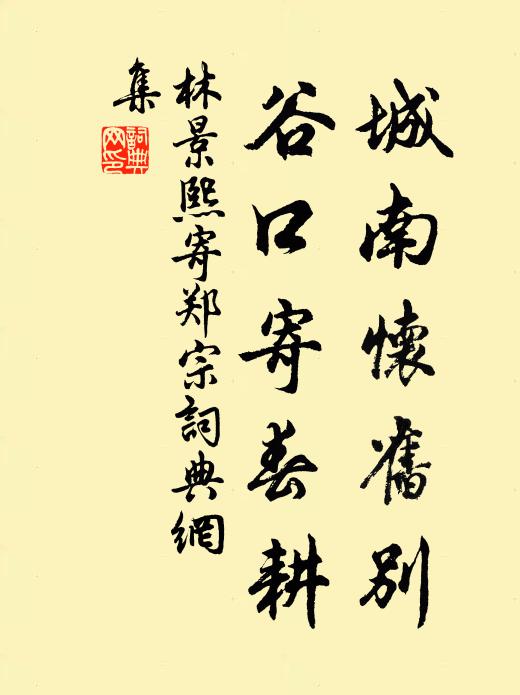 城南懷舊別
谷口寄春耕
林景熙寄郑宗詞典網
集
詞典網印